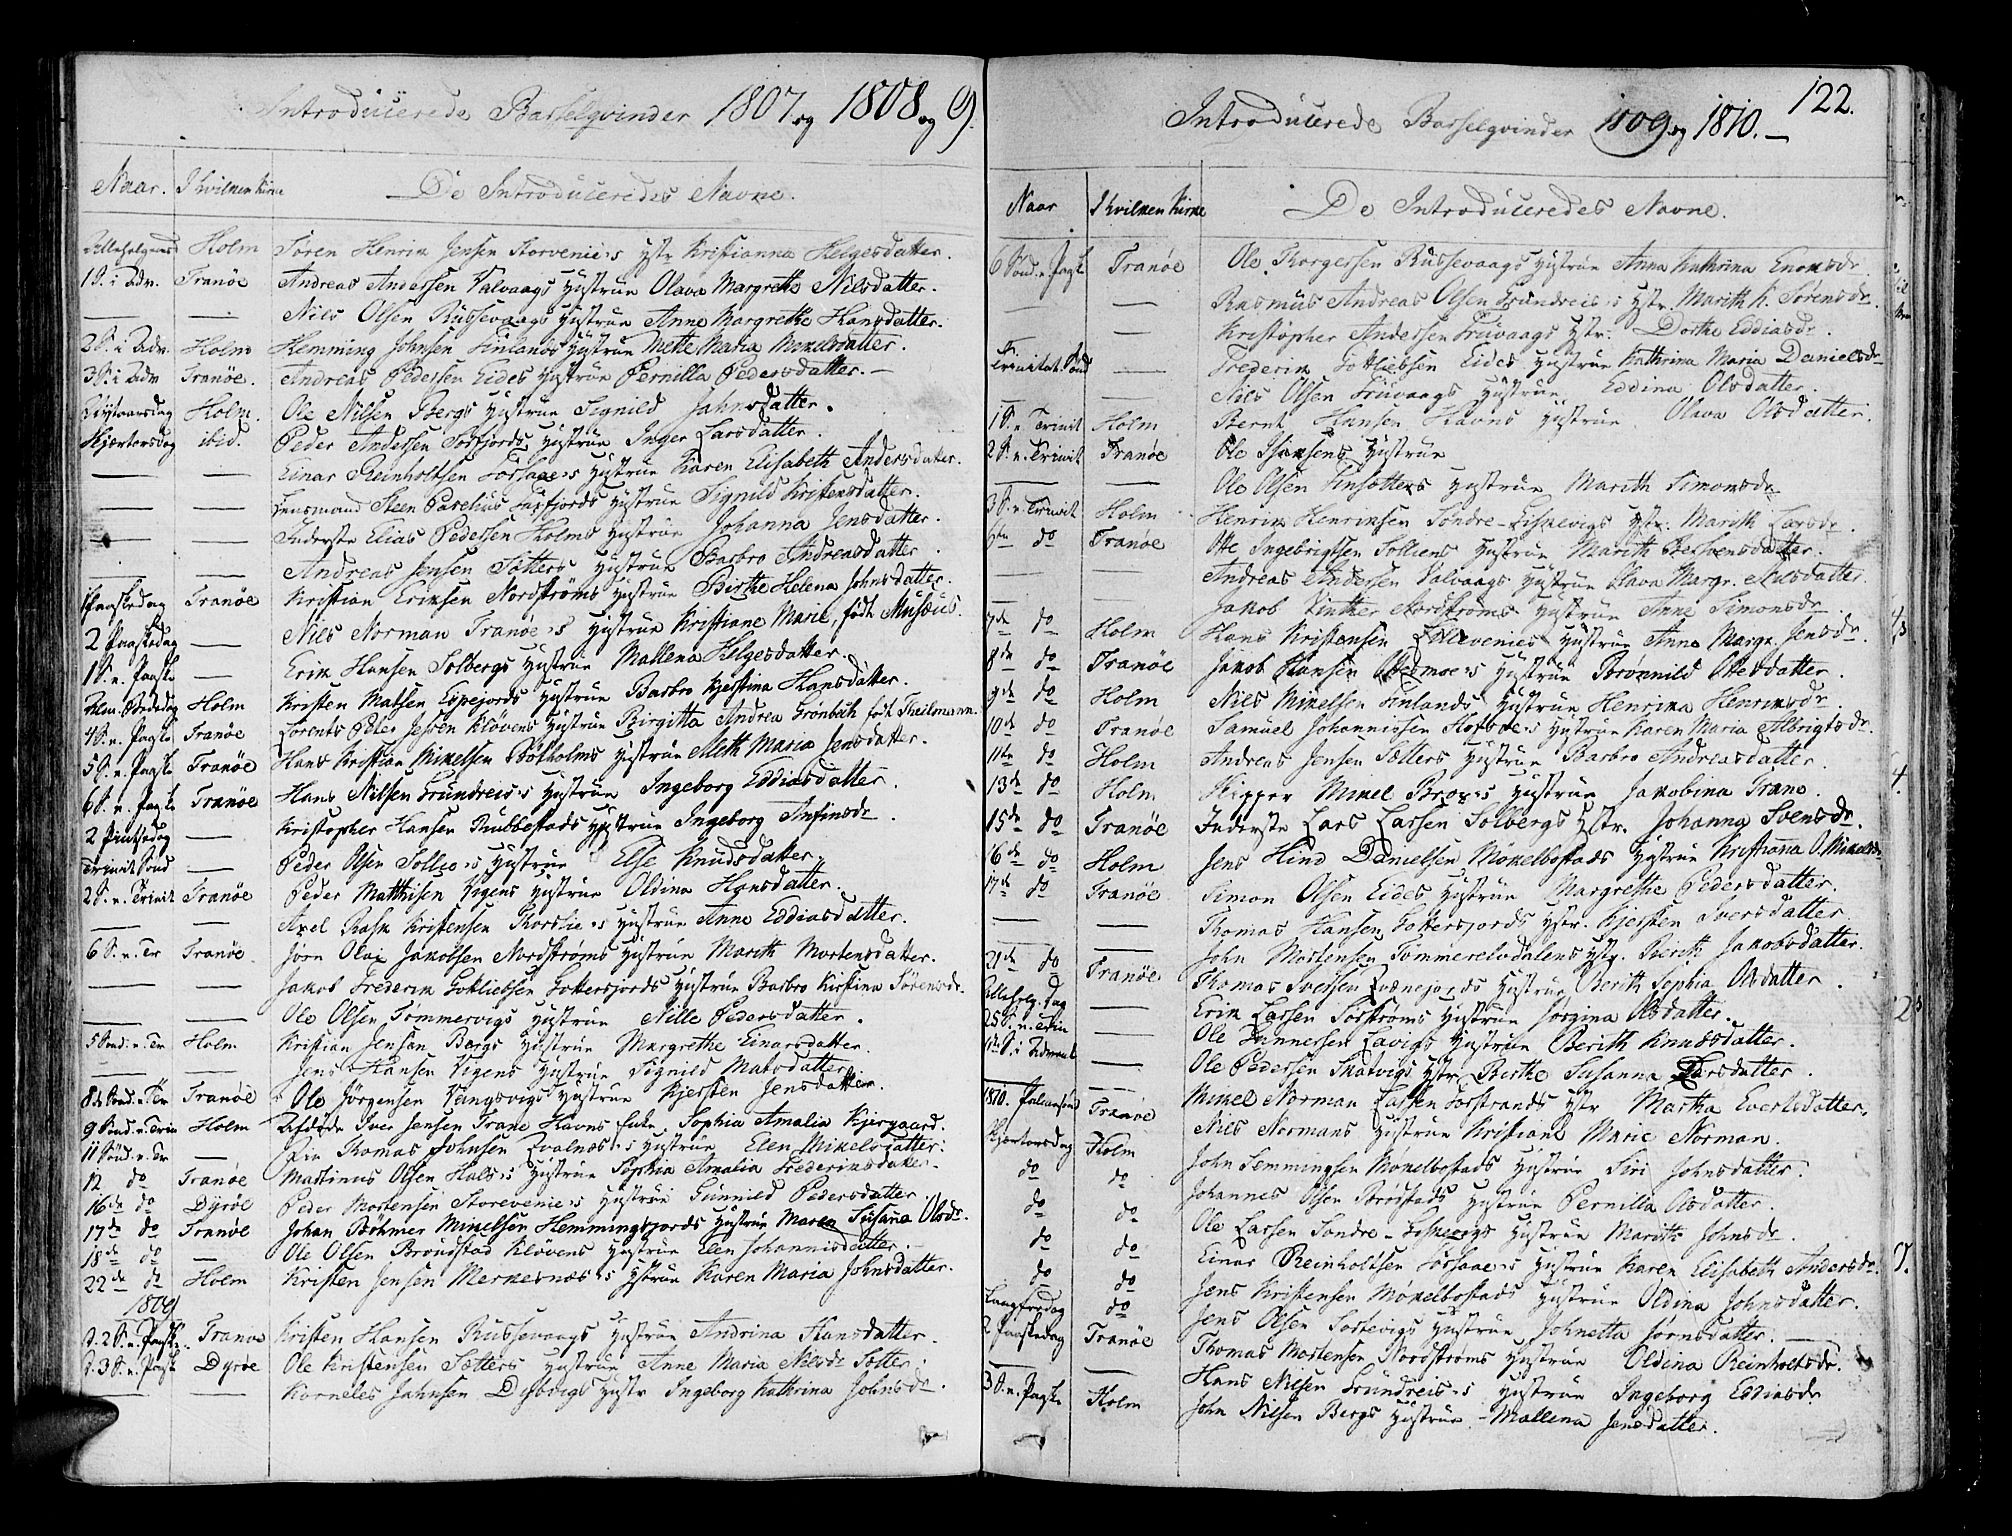 Introducerede Barselqvinder 1807 og 1808 og 9.
Naar. I hvilken Kirke De Introduceredes Navne.
Allehelgens Holm Sören Henrik Jensen Storvenies Hstr. Kristianna Helgesdatter.
1 S. i Adv. Tranöe Andreas Andersen Valvaags Hustrue Olava Margrethe Nilsdatter.
— — Nils Olsen Russevaags Hustrue Anne Margrethe Hansdatter.
2 S. i Adv. Holm Hemming Johnsen Finlands Hustrue Mette Maria Mikelsdatter.
3 S. i Adv Tranöe. Andreas Pedersen Eides Hustrue Pernilla Pedersdatter. —
Nÿtaarsdag Holm. Ole Nilsen Bergs Hustrue Signild Jahnsdatter.
Skjærtorsdag ibid. Peder Andersen Sörfjords Hustrue Inger Larsdatter.
— — Einar Reinholtsen Forsaae's Hustrue Karen Elisabeth Andersdatter.
— — Lensmand Steen Sörfjords Hustrue Signild Kristensdatter.
— — Inderste Elias Pedersen Holms Hustrue Johanna Jensdatter.
— — Andreas Jensen Sætters Hustrue Barbro Andreasdatter
1 Paaskedag Tranöe Kristian Eriksen Nordströms Hustrue Birthe Helena Johnsdatter.
2 Paaskedag — Nils Norman Tranöe's Hustrue Kristiane Marie, født Musæus.
1 S. e. Paaske — Erik Hansen Solbergs Hustrue Mallena Helgesdatter.
Alm. Bededag Holm Kristen Matsen Espejords Hustrue Barbro Kjerstina Hansdatter.
4 S. e. Paaske Tranöe Lorents Peter Jessen Klövens Hustrue Birgitta Andrea Grönbech født Theilmann.
5 S. e. Paaske Tranöe Hans Kristian Mikelsen Bökholms Hustrue Meth Maria Jensdatter.
6 S. e. Paaske Tranöe Hans Nilsen Grundreis's Hustrue Ingeborg Eddiasdatter
2 Pintsedag — Kristopher Hansen Rubbestads Hustrue Ingeborg Anfinsdr.
Trinit Sönd — Peder Olsen Sollie's Hustrue Else Knudsdatter
2 S. e. Trinit Tranöe Peder Matthisen Vigens Hustrue Oldina Hansdatter.
— — Axel Rask Kristensen Thorslie's Hustrue Anne Eddiasdatter.
6 S. e. Tr Tranöe Jörn Olai Jakobsen Nordströms Hustrue Marith Mortensdatter.
— — Jakob Frederik Gotliebsen Gottersjords Hustrue Barbro Kirstina Sörensdr.
— — Ole Olsen Tömmervigs Hustrue Nille Pedersdatter.
5 Sönd. e. Tr Holm Kristian Jensen Bergs Hustrue Margrethe Einarsdatter.
— — Jens Hansen Vigens Hustrue Signild Matsdatter
8de Sönd. e. Tr Tranöe Ole Jörgensen Vangsvigs Hustrue Kjersten Jensdatter.
9 Sönd. e. Trin Holm Afdöde Iver Jensen Trane Havns Enke, Sophia Amalia Kjergaard.
11 Sönd. e. Tr — Thomas Johnsen Hustrue Elen Mikelsdatter.
12 do Tranöe Martinus Olsen Hals's Hustrue Sophia Amalia Frederiksdatter.
16de do Dyröe Peder Mortensen Storevenie's Hustrue Gunnild Pedersdatter
17de do Tranöe Johan Böhmer Mikelsen Hemmingsjords Hustrue Maren Susana Olsdr.
18de do — Ole Olsen Bröndstad Klövens Hustrue Elen Johannisdatter.
22de do Holm Kristen Jensen Merkesnæs's Hstrue Karen Maria Johnsdatter.
1809
D. 2 S. e. Paaske. Tranöe Kristen Hansen Russevaags Hustrue Andrina Hansdatter.
D. 3 S. e. Paaske Dyröe Ole Kristensen Sætters Hustrue Anne Maria Nilsdr Sötter.
— — Korneles Jahnsen Hustr Ingeborg Kathrina Johnsdr.
122.
Introducerede Barselqvinder 1809 og 1810. —
Naar I hvilken Kirke De Introduceredes Navne.
6 Sönd. e. Paaske Tranöe Ole Thorgersen Russevaags Hustrue Anna Kathrina Enoksdr
— Rasmus Andreas Olsen Grundreis's Hstr. Marith K. Sörensdr.
— Kristopher Andersen Gruvaags Hstr. Dorthe Eddiasdr.
Trinitat. Sönd — Frederik Gotliebsen Eides Hustrue Kathrina Maria Danielsdr
— Nils Olsen Gruvaags Hustrue, Eddina Olsdatter.
1 S. e. Trinit Holm Bernt Hansen Havns Hustrue Olava Olsdatter.
2 S. e. Trinit Tranöe Ole Isaksens Hustrue
— — Ole Olsen Finsætters Hustrue Marith Simonsdr
3 S. e. Trinit Holm Henrik Henriksen Söndre-Eiskevigs Hstr. Marith Larsdr.
6te do Tranöe Otte Ingebrigtsen Solliens Hustrue Marith Bersvensdatter.
— — Andreas Andersen Valvaags Hustrue Olava Margr. Nilsdatter.
— — Jakob Vinther Nordströms Hustrue Anne Simonsdr
7de do Holm Hans Kristensen Hustrue Anna Margr. Jensdr.
8de do Tranöe Jakob Hansen Hustrue Brönnild Ottesdatter.
9de do Holm Nils Mikelsen Finlands Hustrue Henrika Henriksdr
10de do Tranöe Samuel Johannissen Hofsöe's Hustrue Karen Maria Albrigtsdr.
11te do Holm Andreas Jensen Sætters Hustrue Barbro Andreasdatter.
13de do Holm Skipper Mikel Brox's Hustrue Jakobina Trane.
15de do Tranöe Inderste Lars Larsen Solbergs Hstr. Johanna Svensdr.
16de do Holm Jens Hind Danielsen Mökelbostads Hustrue Kristianna O. Mikelsdr
17de do Tranöe Simon Olsen Eides Hustrue Margrethe Pedersdatter.
— — Thomas Hansen Gottersjords Hstr. Kjersten Iversdatter
— — John Mortensen Tömmerelvdalens Hstr. Berith Jakobsdatter.
21de do Tranöe Thomas Iversen Hustrue Berith Sophia Olsdatter.
Allehelg. Dag — Erik Larsen Sörströms Hustrue Jörgina Olsdatter.
25 S. e. Trin — Ole Gunnersen Lavigs Hustrue Berith Knudsdatter.
4de S. i Advent — Ole Pedersen Skatvigs Hstr Birthe Susanna Larsdatter.
1810. Palmesönd Tranöe Mikel Norman Larsen Forstrands Hstr Martha Evertsdatter.
— Nils Normans Hustrue Kristiane Marie Norman.
Skjærtorsdag Holm John Hemmingsen Mökelbostads Hustrue Siri Johnsdatter.
do do Johannes Olsen Hustrue Pernilla Olsdatter.
do do Ole Larsen Söndre-Eiskevigs Hustrue Marith Johnsdr.
do do Einar Reinholtsen Forsaae's Hustrue Karen Elisabeth Andersdr.
do do Jens Kristensen Mökelbostads Hustrue Oldina Johnsdatter.
Langfredag do Jens Olsen Hustrue Johnetta Jörnsdatter. —
2 Paaskedag Tranöe Thomas Mortensen Nordströms Hustrue Oldina Reinholtsdr.
— — Hans Nilsen Grundreis's Hustrue Ingeborg Eddiasdr
3 S. e. Paaske Holm John Nilsen Bergs Hustrue - Mallena Jensdatter.